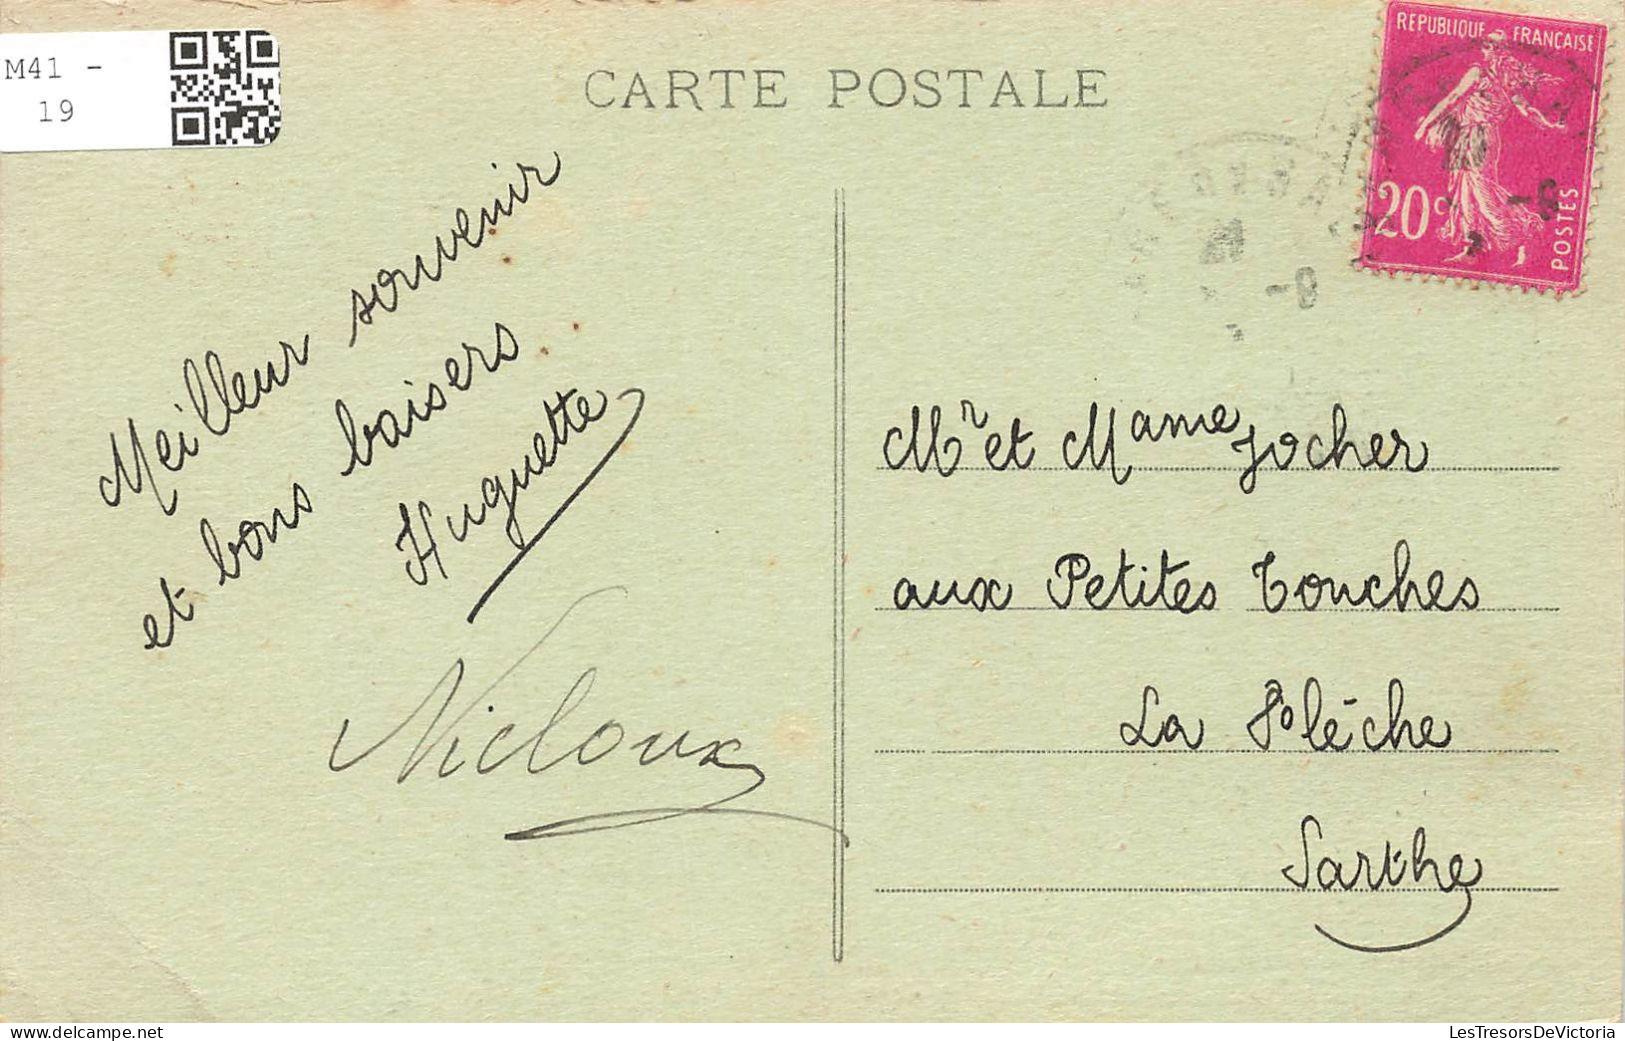 M41 -
19
CARTE POSTALE
REPUBLIQUE FRANÇAISE
20c
POSTES
Meilleur souvenir
et bons baisers
Huguette
Nicloux
Mr et Mame Jocher
aux Petites Touches
La Flèche
Sarthe
delcampe.net
LesTresorsDeVictoria